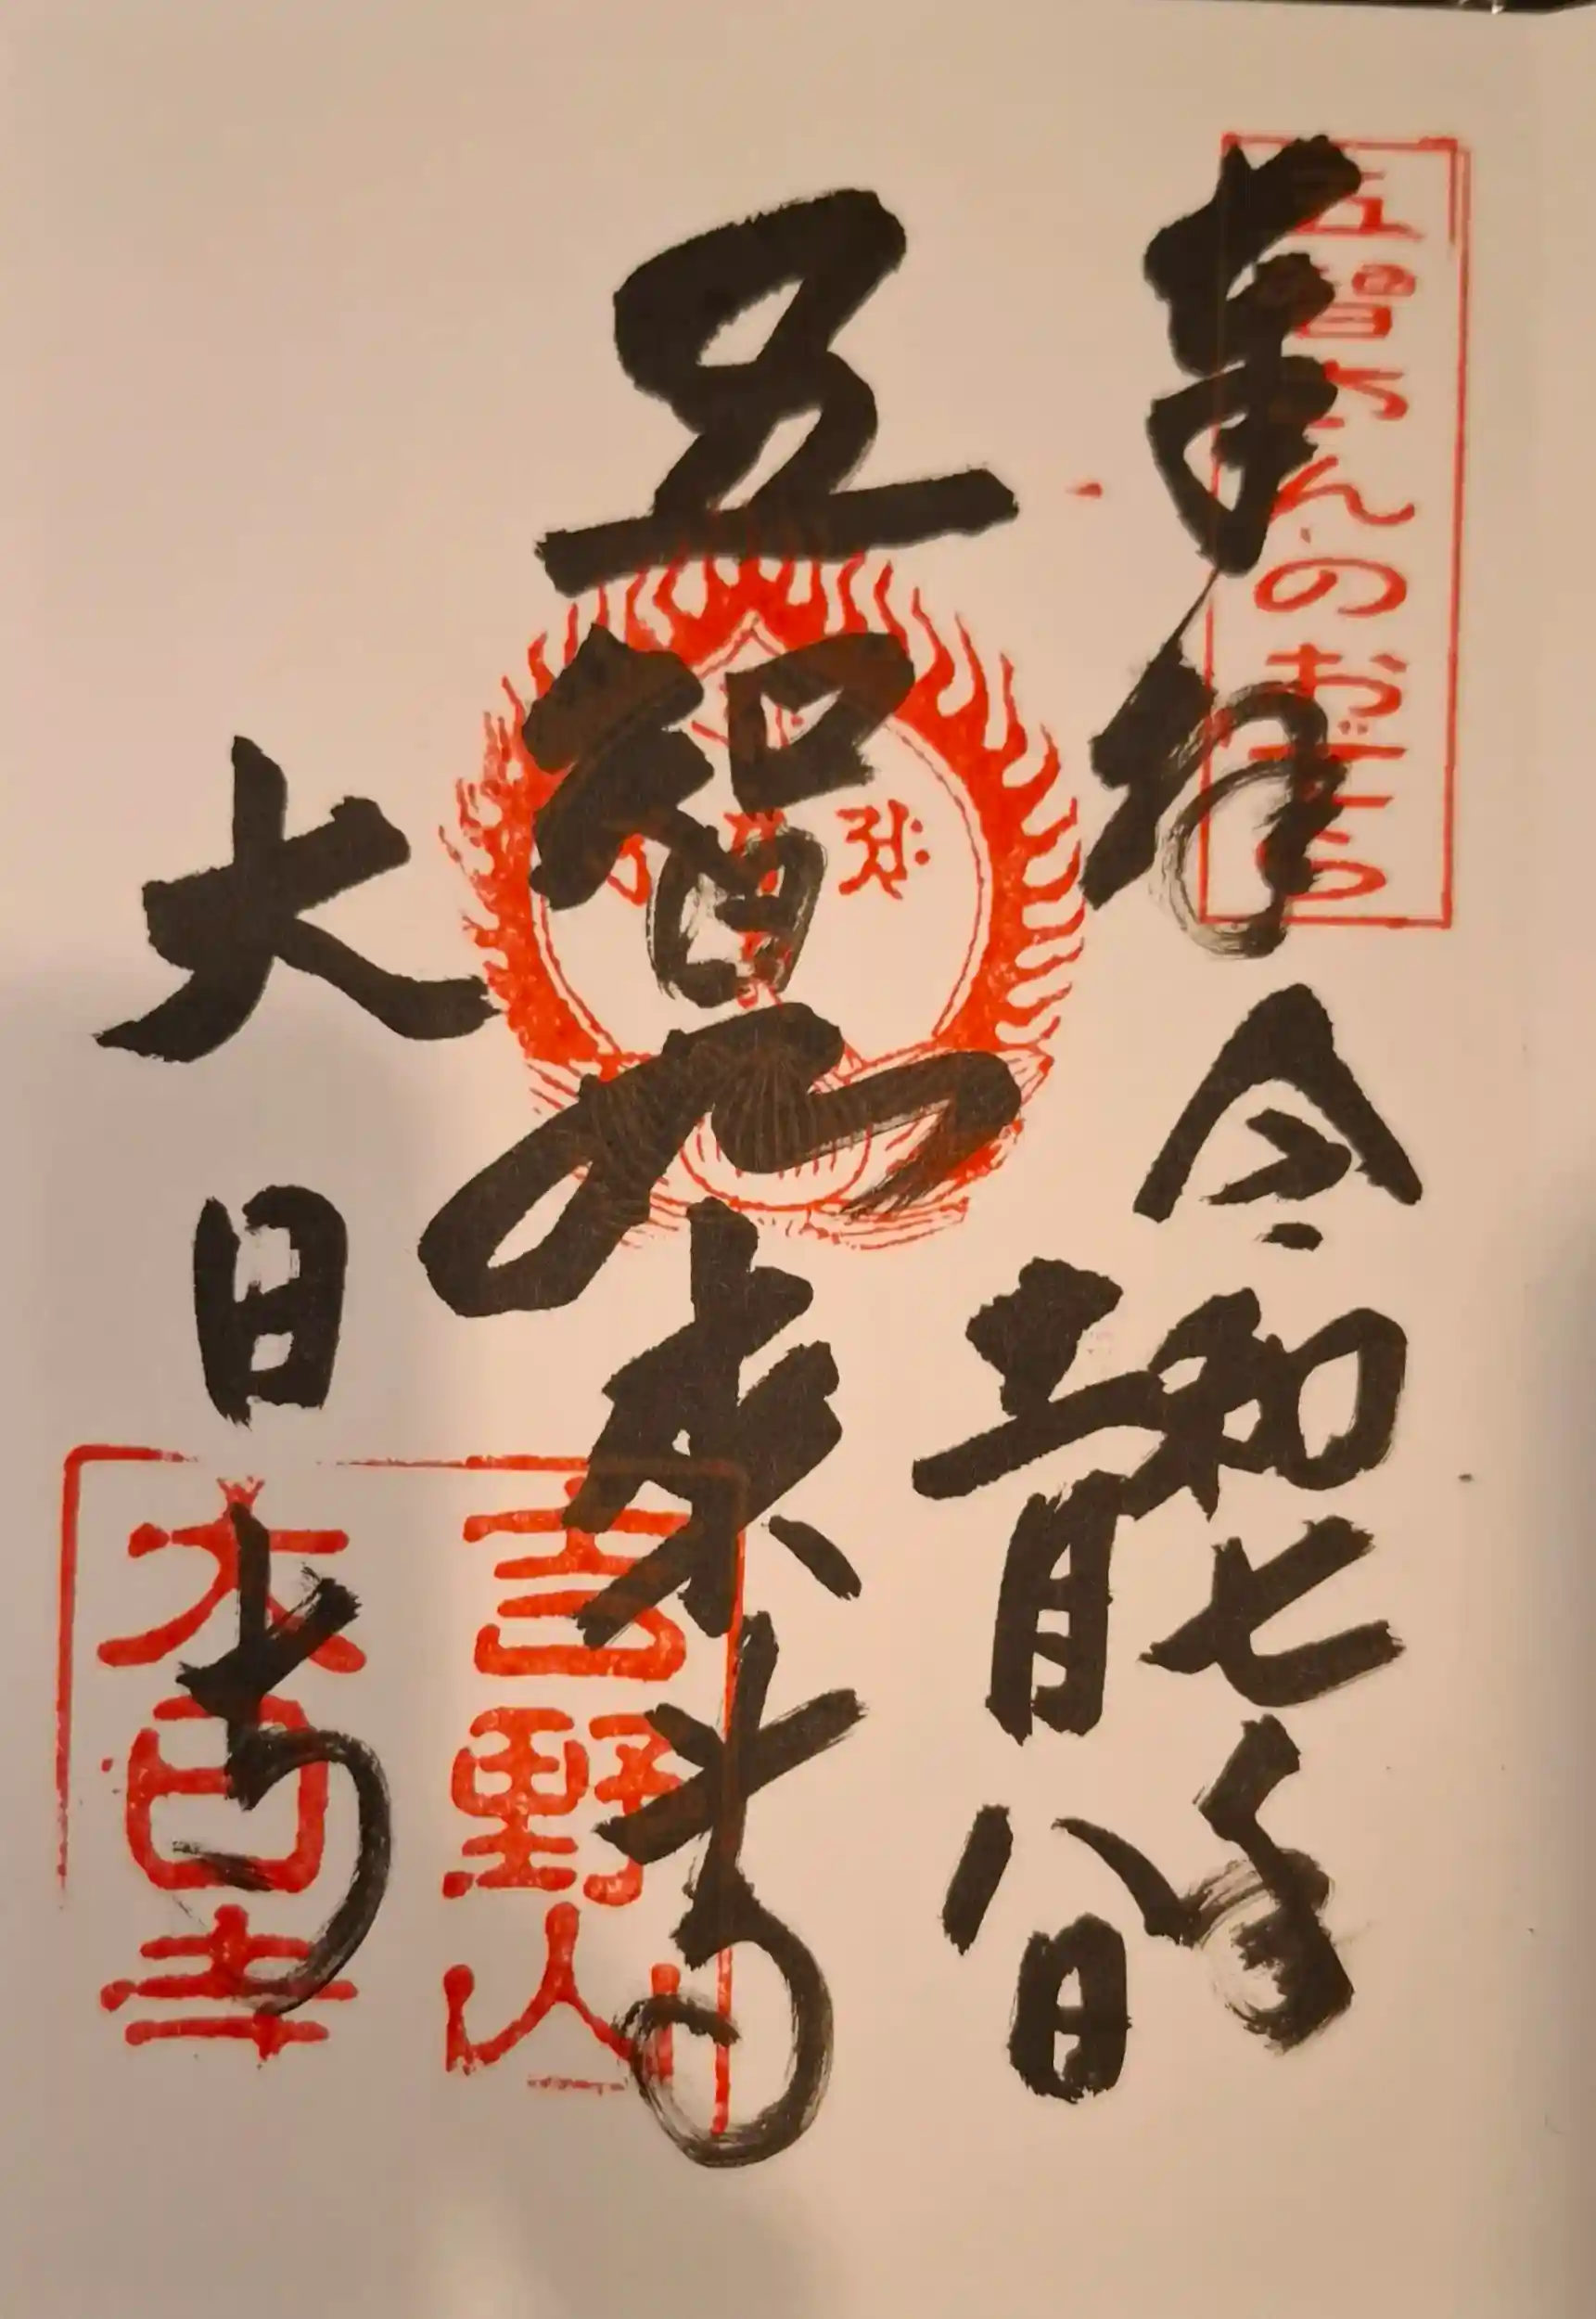 五智さんのおてら
奉拝
令和七年
月八日
五智如来寺
大日寺
吉野山
大日寺